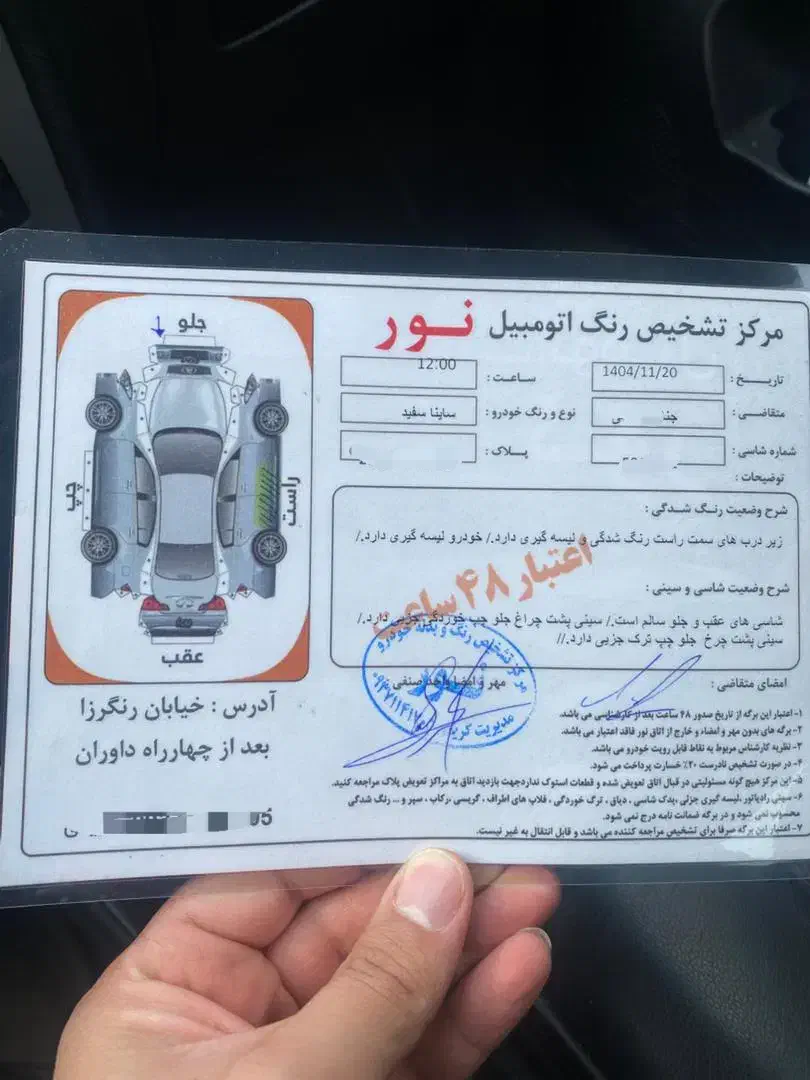 مرکز تشخیص رنگ اتومبیل نور
تاریخ: 1404/11/20
ساعت: 12:00
متقاضی: جنا ی
نوع و رنگ خودرو: ساینا سفید
شماره شاسی:
پلاک:
توضیحات:
شرح وضعیت رنگ شدگی:
زیر درب های سمت راست رنگ شدگی و لیسه گیری دارد./ خودرو لیسه گیری دارد./
اعتبار ۴۸ ساعت
شرح وضعیت شاسی و سینی:
شاسی های عقب و جلو سالم است./ سینی پشت چراغ جلو چپ خوردگی جزیی دارد./
سینی پشت چرخ جلو چپ ترک جزیی دارد.//
امضای متقاضی:
مهر و امضا واحد صنفی
مرکز تشخیص رنگ و بدنه خودرو
نور
مدیریت
۱- اعتبار این برگه از تاریخ صدور ۴۸ ساعت بعد از کارشناسی می باشد.
۲- برگه های بدون مهر و امضاء و خارج از اتاق نور فاقد اعتبار می باشد.
۳- نظریه کارشناس مربوط به نقاط قابل رویت خودرو می باشد.
۴- در صورت تشخیص نادرست ۲۰٪ خسارت پرداخت می شود.
۵- این مرکز هیچ گونه مسئولیتی در قبال اتاق تعویض شده و قطعات استوک ندارد جهت بازدید اتاق به مراکز تعویض پلاک مراجعه کنید.
۶- سینی رادیاتور، لیسه گیری جزئی، یدک شاسی، دیاق، ترک خوردگی، قلاب های اطراف، گریسی، رکاب، سپر و... رنگ شدگی
محسوب نمی شود و در برگه ضمانت نامه درج نمی شود.
۷- اعتبار این برگه صرفا برای تشخیص مراجعه کننده می باشد و قابل انتقال به غیر نیست.
جلو
راست
چپ
عقب
آدرس: خیابان رنگرزا
بعد از چهارراه داوران